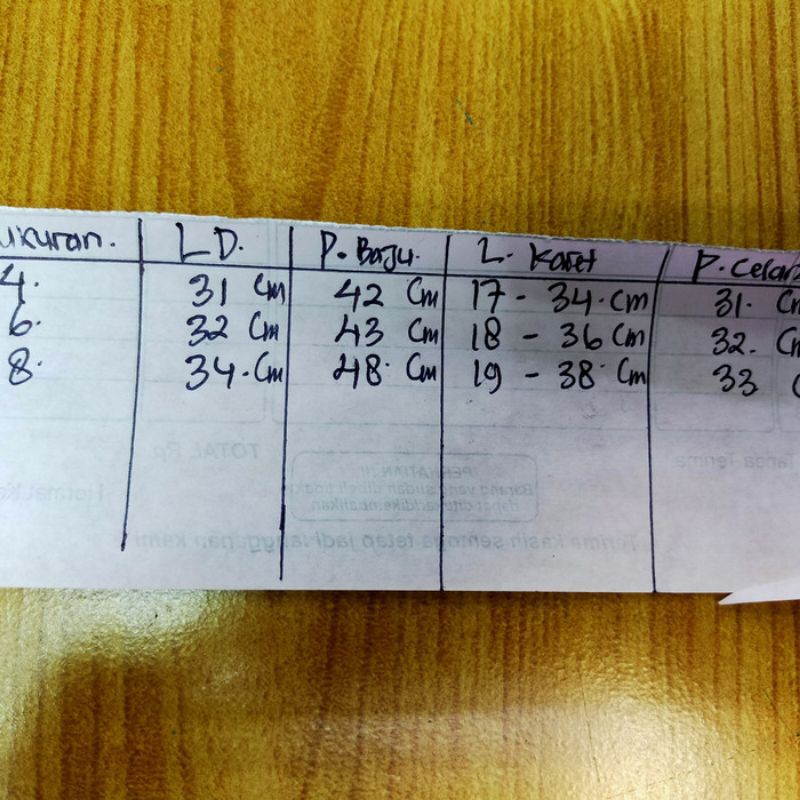 ukuran. LD. P. Baju. L. Karet P. Celan
4. 31 Cm 42 Cm 17 - 34. cm 31. Cm
6. 32 Cm 43 Cm 18 - 36 Cm 32. Cm
8. 34. Cm 48. Cm 19 - 38 Cm 33 C
TOTAL Rp. Tanda Terima
PERHATIAN !!!
Barang yang sudah dibeli tidak Hormat Ka
dapat ditukar/dikembalikan
Terima kasih semoga tetap jadi langganan kami